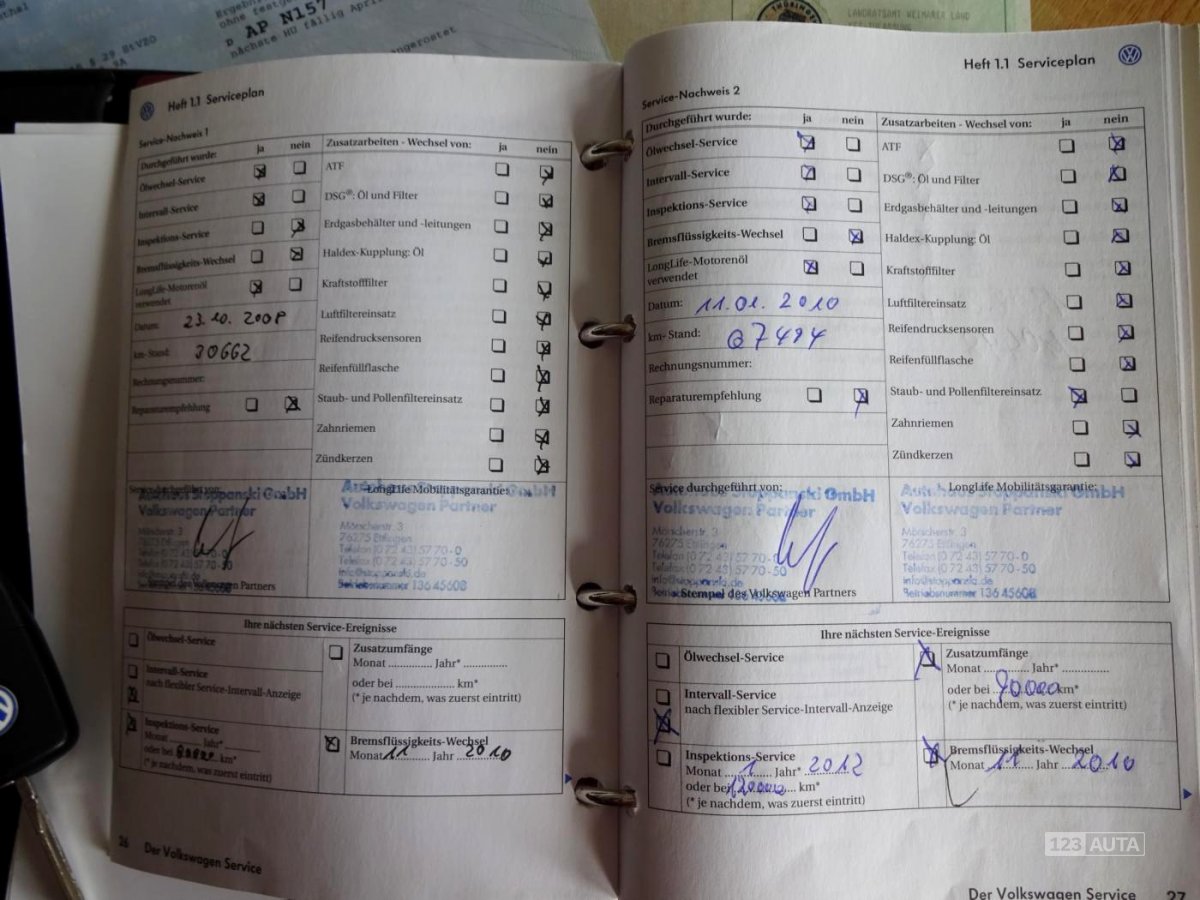 Ergebnis
Ohne festge
D AP N157
nächste HU fällig April
ingerostet
§ 29 StVZO
THÜRINGEN
LANDRATSAMT WEIMARER LAND
Heft 1.1 Serviceplan
Service-Nachweis 1
Durchgeführt wurde: ja nein
Ölwechsel-Service
Intervall-Service
Inspektions-Service
Bremsflüssigkeits-Wechsel
LongLife-Motorenöl
verwendet
Datum: 23.10.2008
km-Stand: 30662
Rechnungsnummer:
Reparaturempfehlung
Zusatzarbeiten - Wechsel von: ja nein
ATF
DSG®: Öl und Filter
Erdgasbehälter und -leitungen
Haldex-Kupplung: Öl
Kraftstofffilter
Luftfiltereinsatz
Reifendrucksensoren
Reifenfüllflasche
Staub- und Pollenfiltereinsatz
Zahnriemen
Zündkerzen
Service durchgeführt von:
Autohaus Stoppanski GmbH
Volkswagen Partner
Mörscherstr. 3
76275 Ettlingen
Telefon (0 72 43) 57 70 - 0
Telefax (0 72 43) 57 70 - 50
info@stoppanski.de
Stempel des Volkswagen Partners
LongLife Mobilitätsgarantie:
Autohaus Stoppanski GmbH
Volkswagen Partner
Mörscherstr. 3
76275 Ettlingen
Telefon (0 72 43) 57 70 - 0
Telefax (0 72 43) 57 70 - 50
info@stoppanski.de
Betriebsnummer 136 45608
Ihre nächsten Service-Ereignisse
Ölwechsel-Service
Intervall-Service
nach flexibler Service-Intervall-Anzeige
Inspektions-Service
Monat ........ Jahr* ........
oder bei ........ km*
(* je nachdem, was zuerst eintritt)
Zusatzumfänge
Monat ............ Jahr* ............
oder bei ................ km*
(* je nachdem, was zuerst eintritt)
Bremsflüssigkeits-Wechsel
Monat 11 Jahr 2010
26 Der Volkswagen Service
Heft 1.1 Serviceplan
Service-Nachweis 2
Durchgeführt wurde: ja nein
Ölwechsel-Service
Intervall-Service
Inspektions-Service
Bremsflüssigkeits-Wechsel
LongLife-Motorenöl
verwendet
Datum: 11.01.2010
km-Stand: 67494
Rechnungsnummer:
Reparaturempfehlung
Zusatzarbeiten - Wechsel von: ja nein
ATF
DSG®: Öl und Filter
Erdgasbehälter und -leitungen
Haldex-Kupplung: Öl
Kraftstofffilter
Luftfiltereinsatz
Reifendrucksensoren
Reifenfüllflasche
Staub- und Pollenfiltereinsatz
Zahnriemen
Zündkerzen
Service durchgeführt von:
Autohaus Stoppanski GmbH
Volkswagen Partner
Mörscherstr. 3
76275 Ettlingen
Telefon (0 72 43) 57 70 - 0
Telefax (0 72 43) 57 70 - 50
info@stoppanski.de
Stempel des Volkswagen Partners
LongLife Mobilitätsgarantie:
Autohaus Stoppanski GmbH
Volkswagen Partner
Mörscherstr. 3
76275 Ettlingen
Telefon (0 72 43) 57 70 - 0
Telefax (0 72 43) 57 70 - 50
info@stoppanski.de
Betriebsnummer 136 45608
Ihre nächsten Service-Ereignisse
Ölwechsel-Service
Intervall-Service
nach flexibler Service-Intervall-Anzeige
Inspektions-Service
Monat 1 Jahr* 2012
oder bei 120000 km*
(* je nachdem, was zuerst eintritt)
Zusatzumfänge
Monat ............ Jahr* ............
oder bei 90000 km*
(* je nachdem, was zuerst eintritt)
Bremsflüssigkeits-Wechsel
Monat 11 Jahr 2010
Der Volkswagen Service 27
123 AUTA